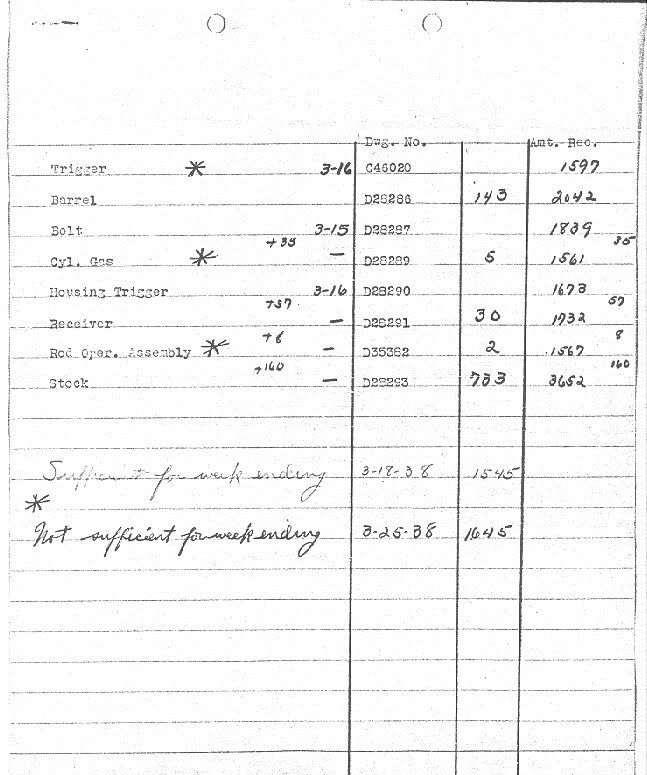 Dwg. No. Amt. Rec.
Trigger * 3-16 C46020 1597
Barrel D28286 143 2042
Bolt 3-15 D28287 1839
+35 35
Cyl. Gas * - D28289 5 1561
Housing Trigger 3-16 D28290 1673
+57 57
Receiver - D28291 30 1932
+8 8
Rod Oper. Assembly * - D35382 2 1567
+160 160
Stock - D28293 733 3652
Sufficient for week ending 3-18-38 1545
*
Not sufficient for week ending 3-25-38 1645